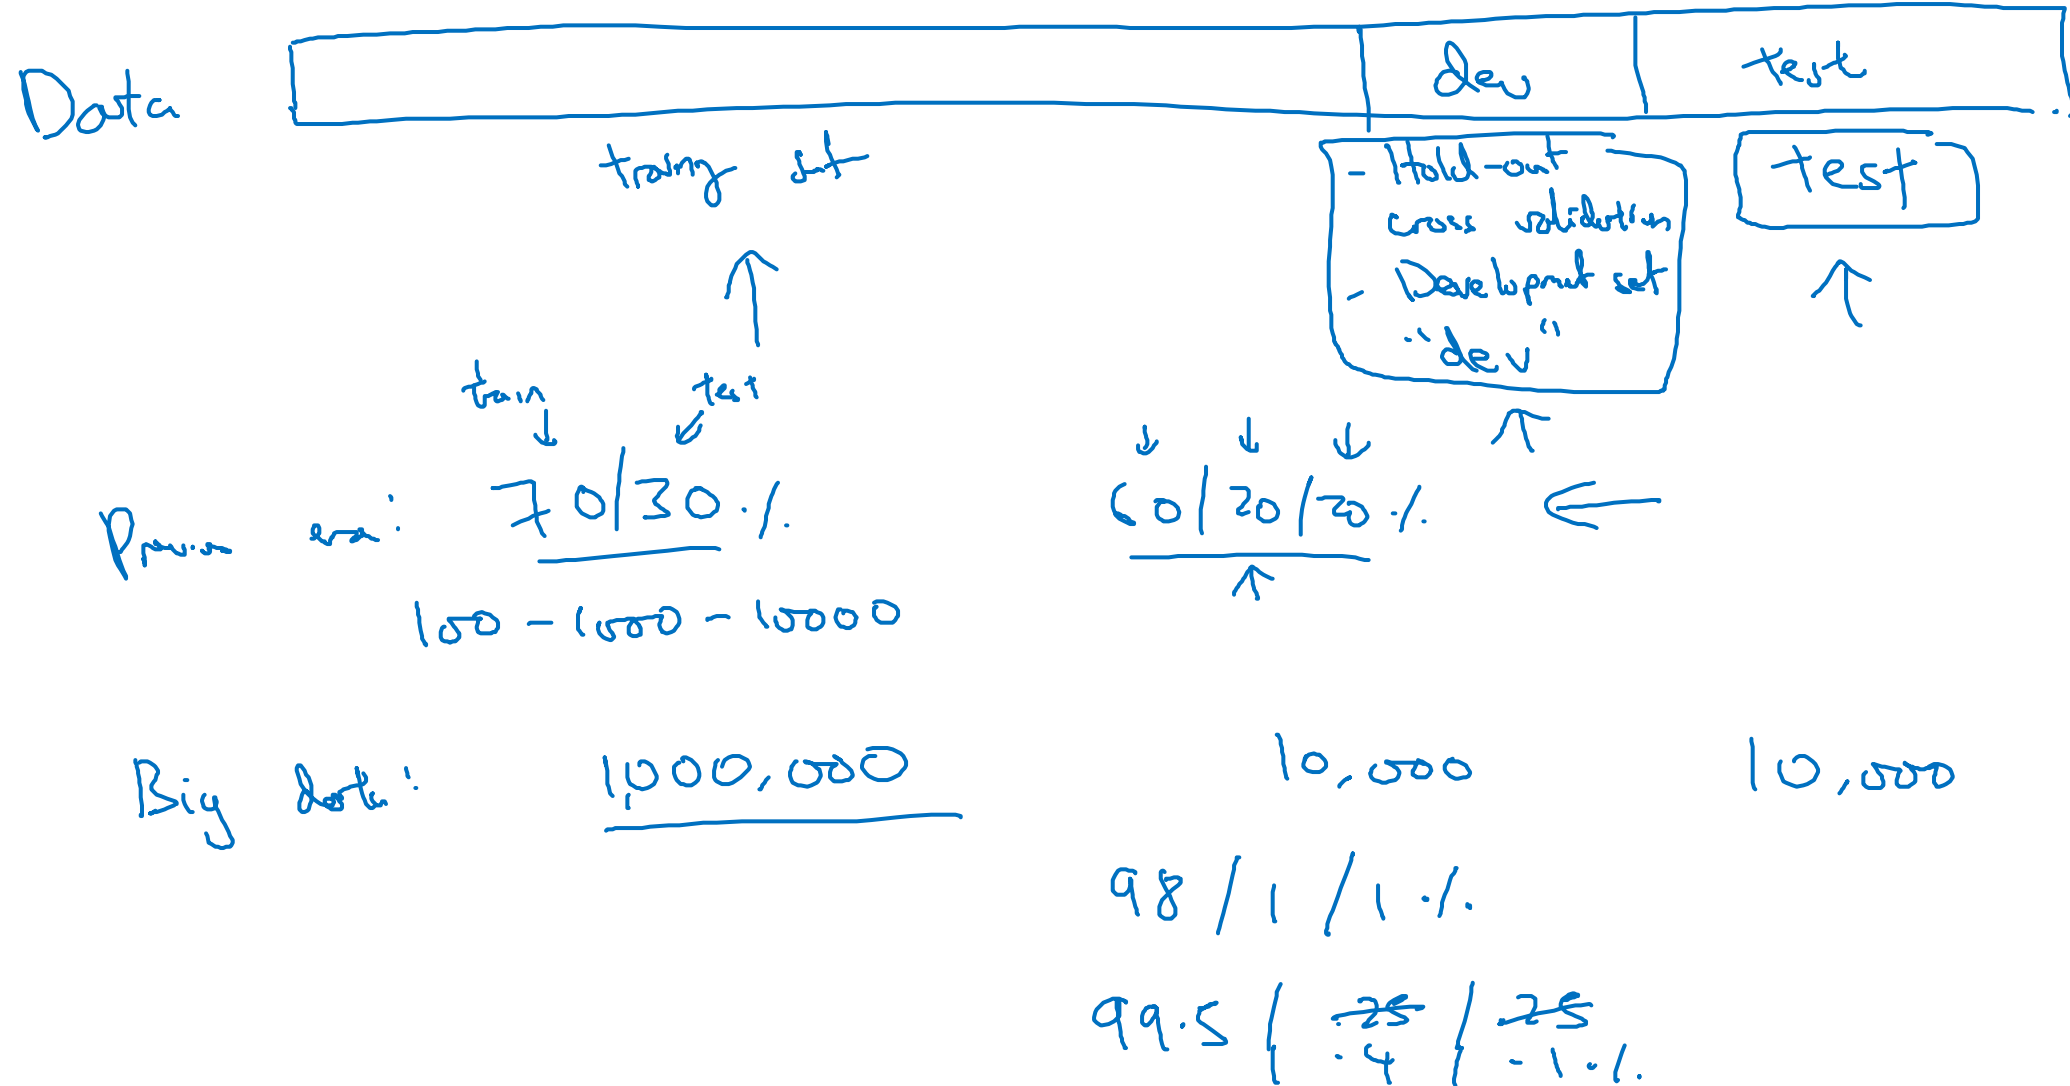 Data
dev
test
training set
- Hold-out
cross validation
- Development set
"dev"
test
train
test
Previous era:
70/30%
60/20/20%
100-1000-10000
Big data:
1,000,000
10,000
10,000
98/1/1%
99.5/.25/.25
.4/.1%